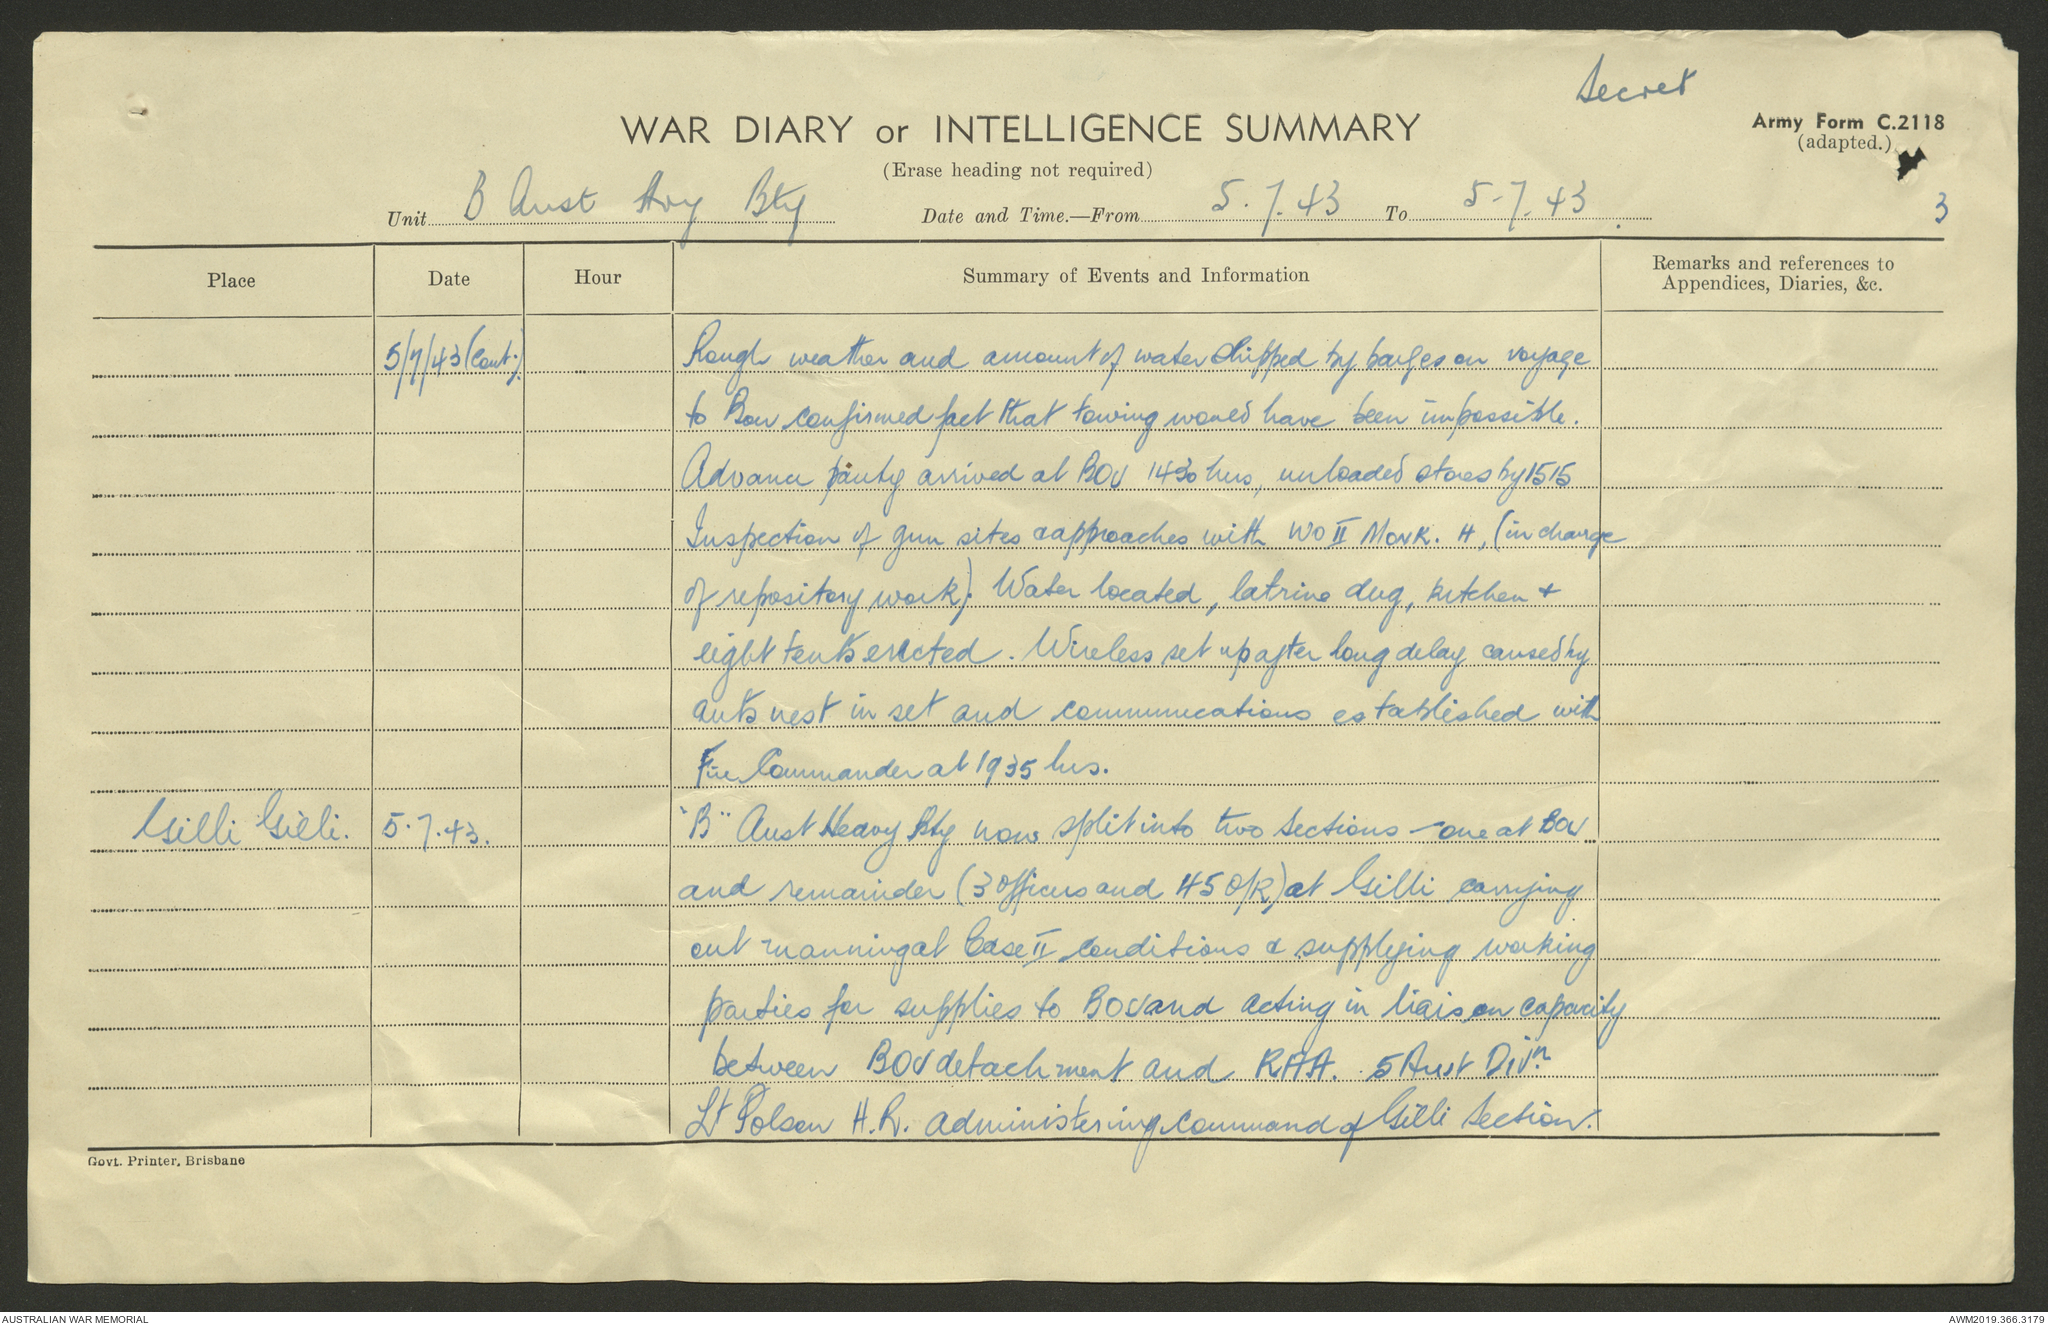 Secret
WAR DIARY or INTELLIGENCE SUMMARY
Army Form C.2118
(adapted.)
(Erase heading not required)
Unit B Aust Hvy Bty Date and Time.—From 5.7.43 To 5-7.43
3
Place Date Hour Summary of Events and Information Remarks and references to
Appendices, Diaries, &c.
5/7/43 (Cont.) Rough weather and amount of water shipped by barges on voyage
to Bou confirmed fact that towing would have been impossible.
Advance party arrived at BOU 1430 hrs, unloaded stores by 1515
Inspection of gun sites & approaches with WO II Monk. H, (in charge
of repository work). Water located, latrine dug, kitchen +
eight tents erected. Wireless set up after long delay caused by
ants nest in set and communications established with
Fire Commander at 1935 hrs.
Gilli Gilli. 5.7.43. "B" Aust Heavy Bty now split into two sections - one at BOU
and remainder (3 officers and 45 O/R) at Gilli carrying
out manning at Case II conditions & supplying working
parties for supplies to BOU and acting in liaison capacity
between BOU detachment and RAA. 5 Aust Divn.
Lt Polson H.R. administering command of Gilli Section.
Govt. Printer, Brisbane
AUSTRALIAN WAR MEMORIAL
AWM2019.366.3179